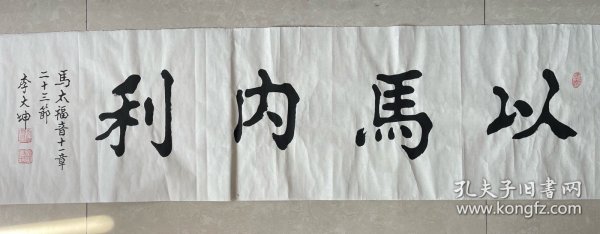 以馬內利
馬太福音十一章
二十三節
李大坤
孔夫子旧書网
www.kongfz.com